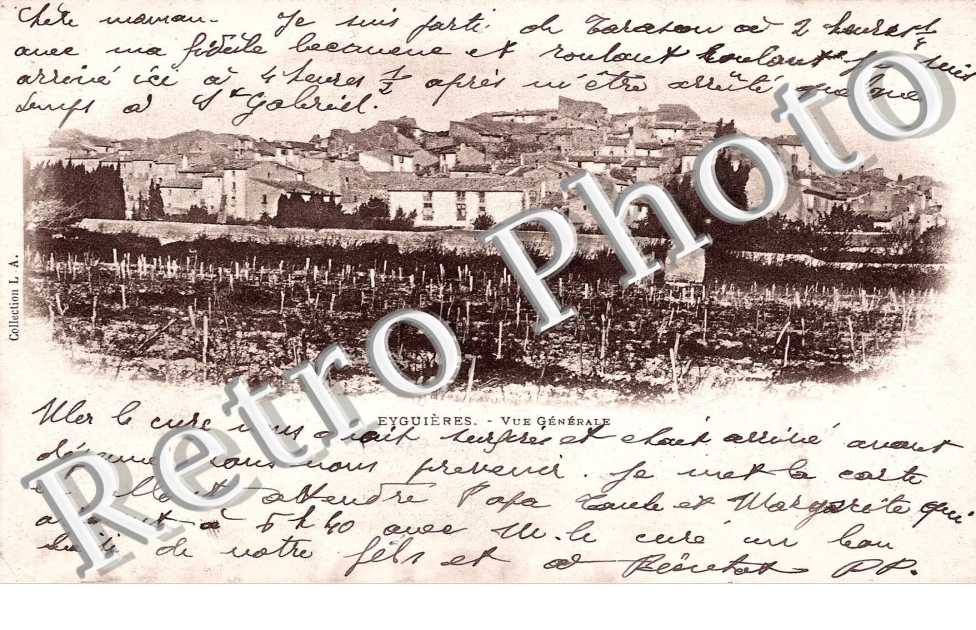 Chère maman. Je suis parti de Tarascon à 2 heures 1/4
avec ma fidèle becanene et roulant roulant je suis
arrivé ici à 4 heures 1/2 après m'être arrêté quelque
temps à St Gabriel.
Collection L. A.
EYGUIÈRES. - VUE GÉNÉRALE
Retro Photo
Retro Photo
Mer le curé nous avait surpris et était arrivé avant
nous prevenir. Je met la carte
attendre Papa Tante et Margarite qui
à 5 h 40 avec M. le curé un bon
de notre fils et à Bientot P.P.